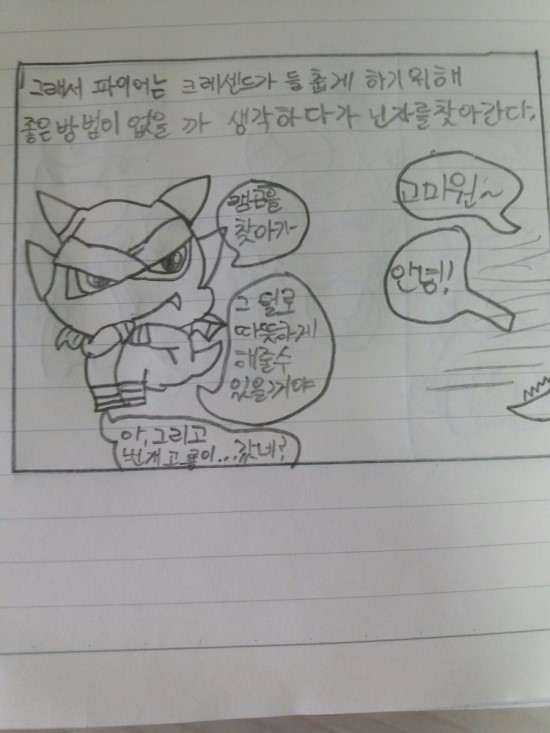 그래서 파이어는 크레센드가 들 춥게 하기위해
좋은방법이 없을 까 생각하다가 닌자를찾아간다.
램곤을
찾아가~
고마워~
안녕!
그 털로
따뜻하게
해줄수
있을거야
아,그리고
번개고룡이...갔네?